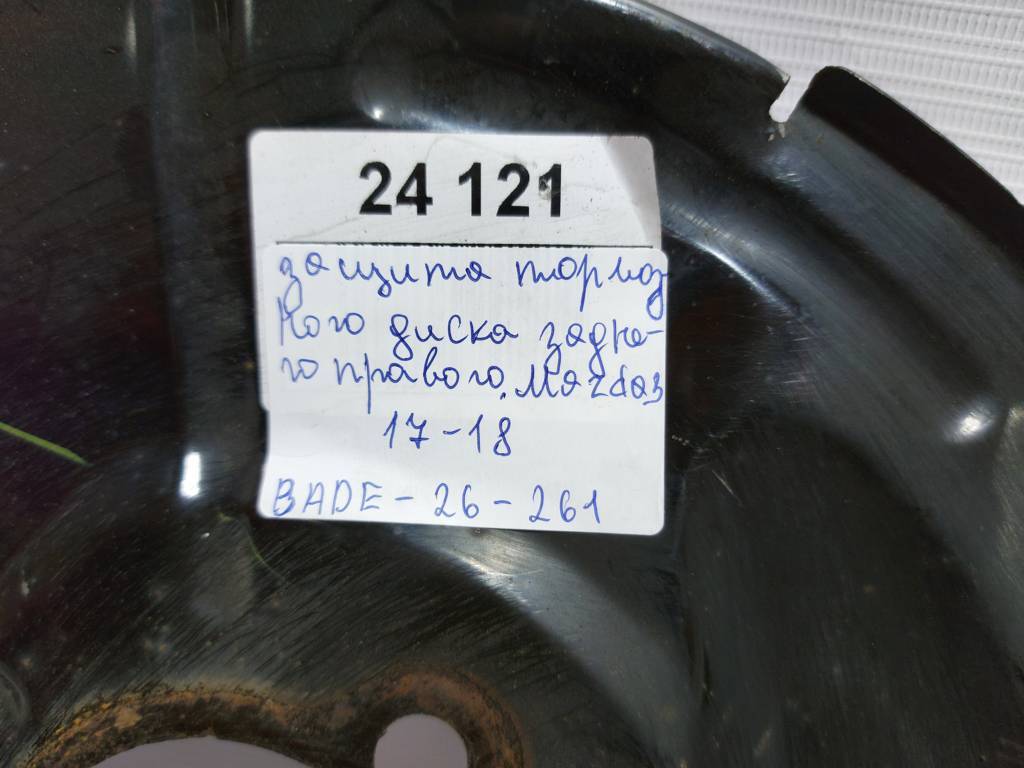 24 121
защита тормоз
ного диска задне-
го правого. Mazda3
17-18
BADE-26-261